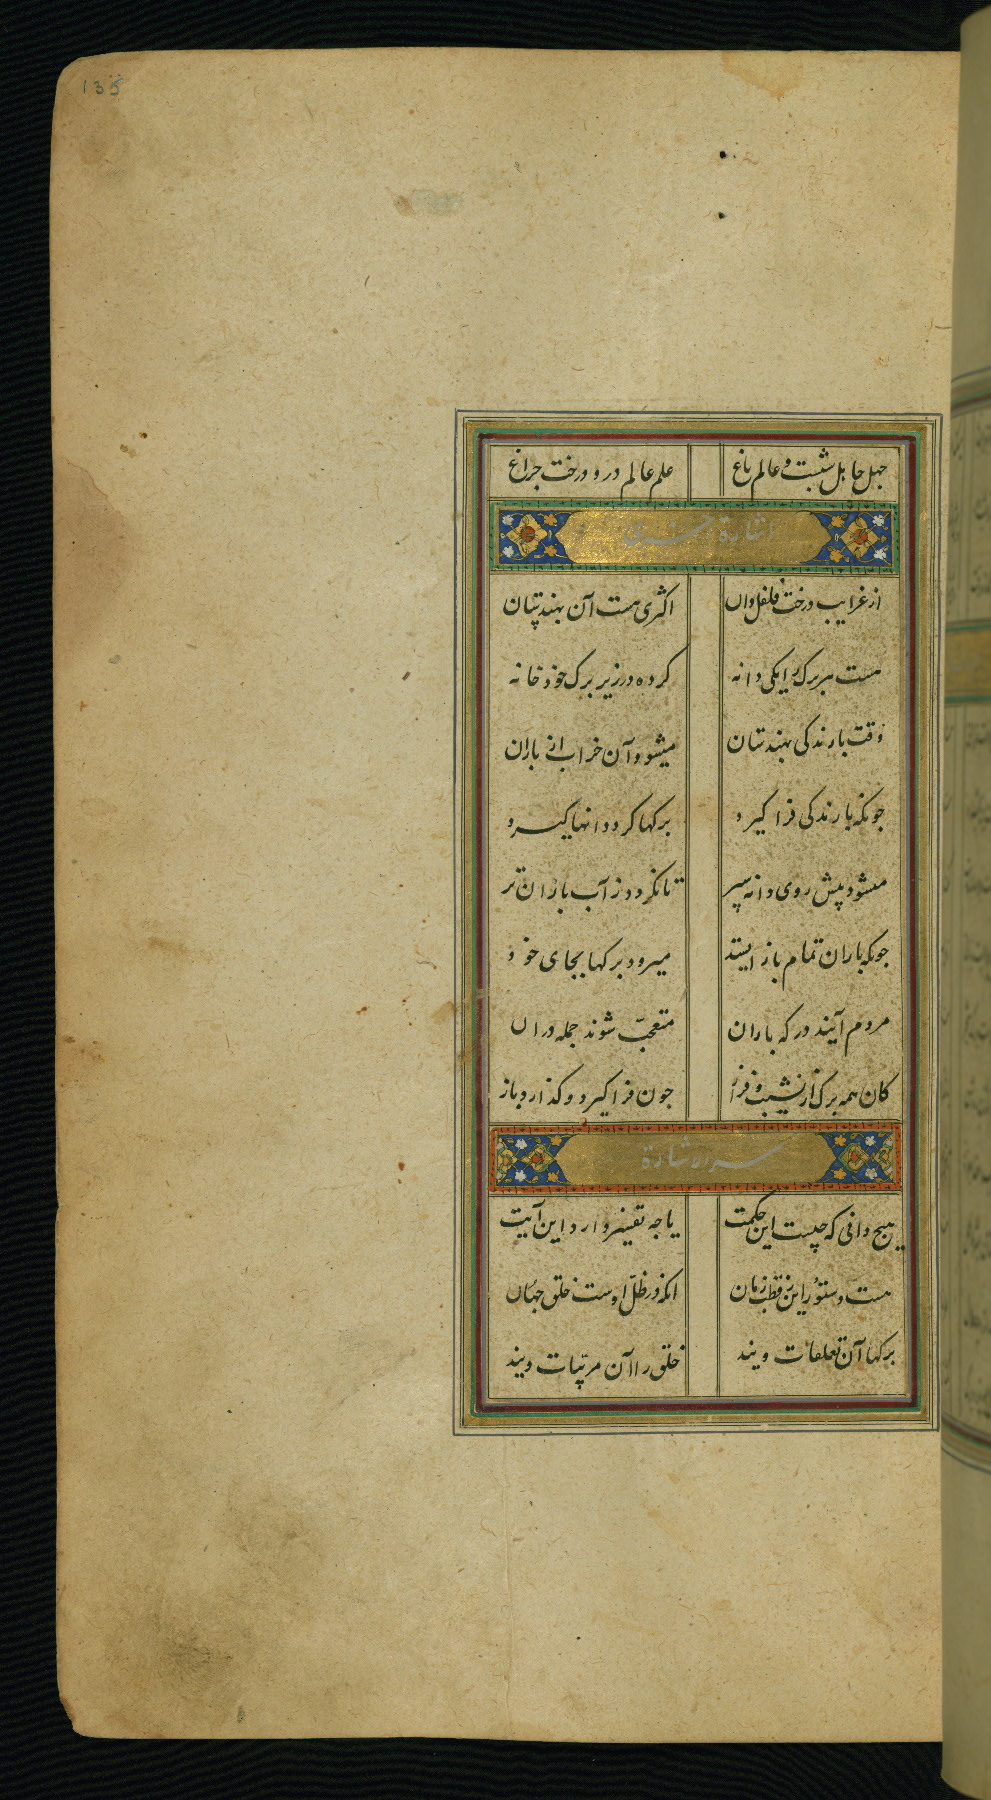 135
جهل جاهل شبست و عالم باغ علم عالم درو درخت جراغ
اشارة اخری
از غرایب درخت فلفل دان اکثری هست آن بهندستان
هست هر برک را یکی دانه کرده در زیر برک خود خانه
وقت بارندکی هندستان میشود آن خراب از باران
جونکه بارندکی فرا کیرد برکها کرد دانها کیرد
میشود پیش روی دانه سپر تا نکردد ز آب باران تر
جونکه باران تمام باز ایستد میرود برکها بجای خود
مردم آیند در که باران متعجّب شوند جمله در آن
کان همه برک از نشیب و فراز جون فرا کیرد و کذارد باز
سر اشارة
هیج دانی که جیست این حکمت یا جه تفسیر دارد این آیت
هست دستور این قطب زمان انکه در ظلّ اوست خلق جهان
برکها آن تعلقات ویند خلق را آن مربّیات ویند